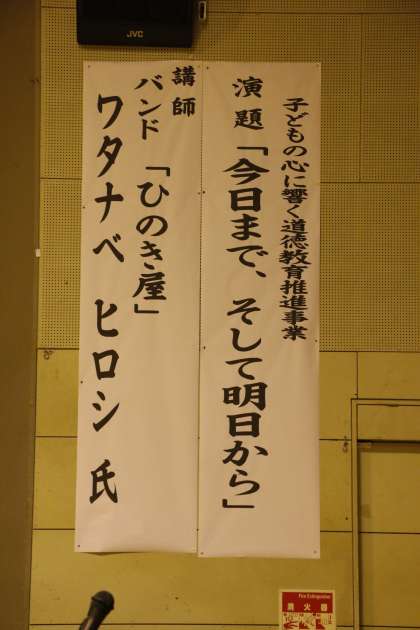 子どもの心に響く道徳教育推進事業
演題「今日まで、そして明日から」
講師
バンド「ひのき屋」
ワタナベ ヒロシ 氏
JVC
Fire Extinguisher
消火器